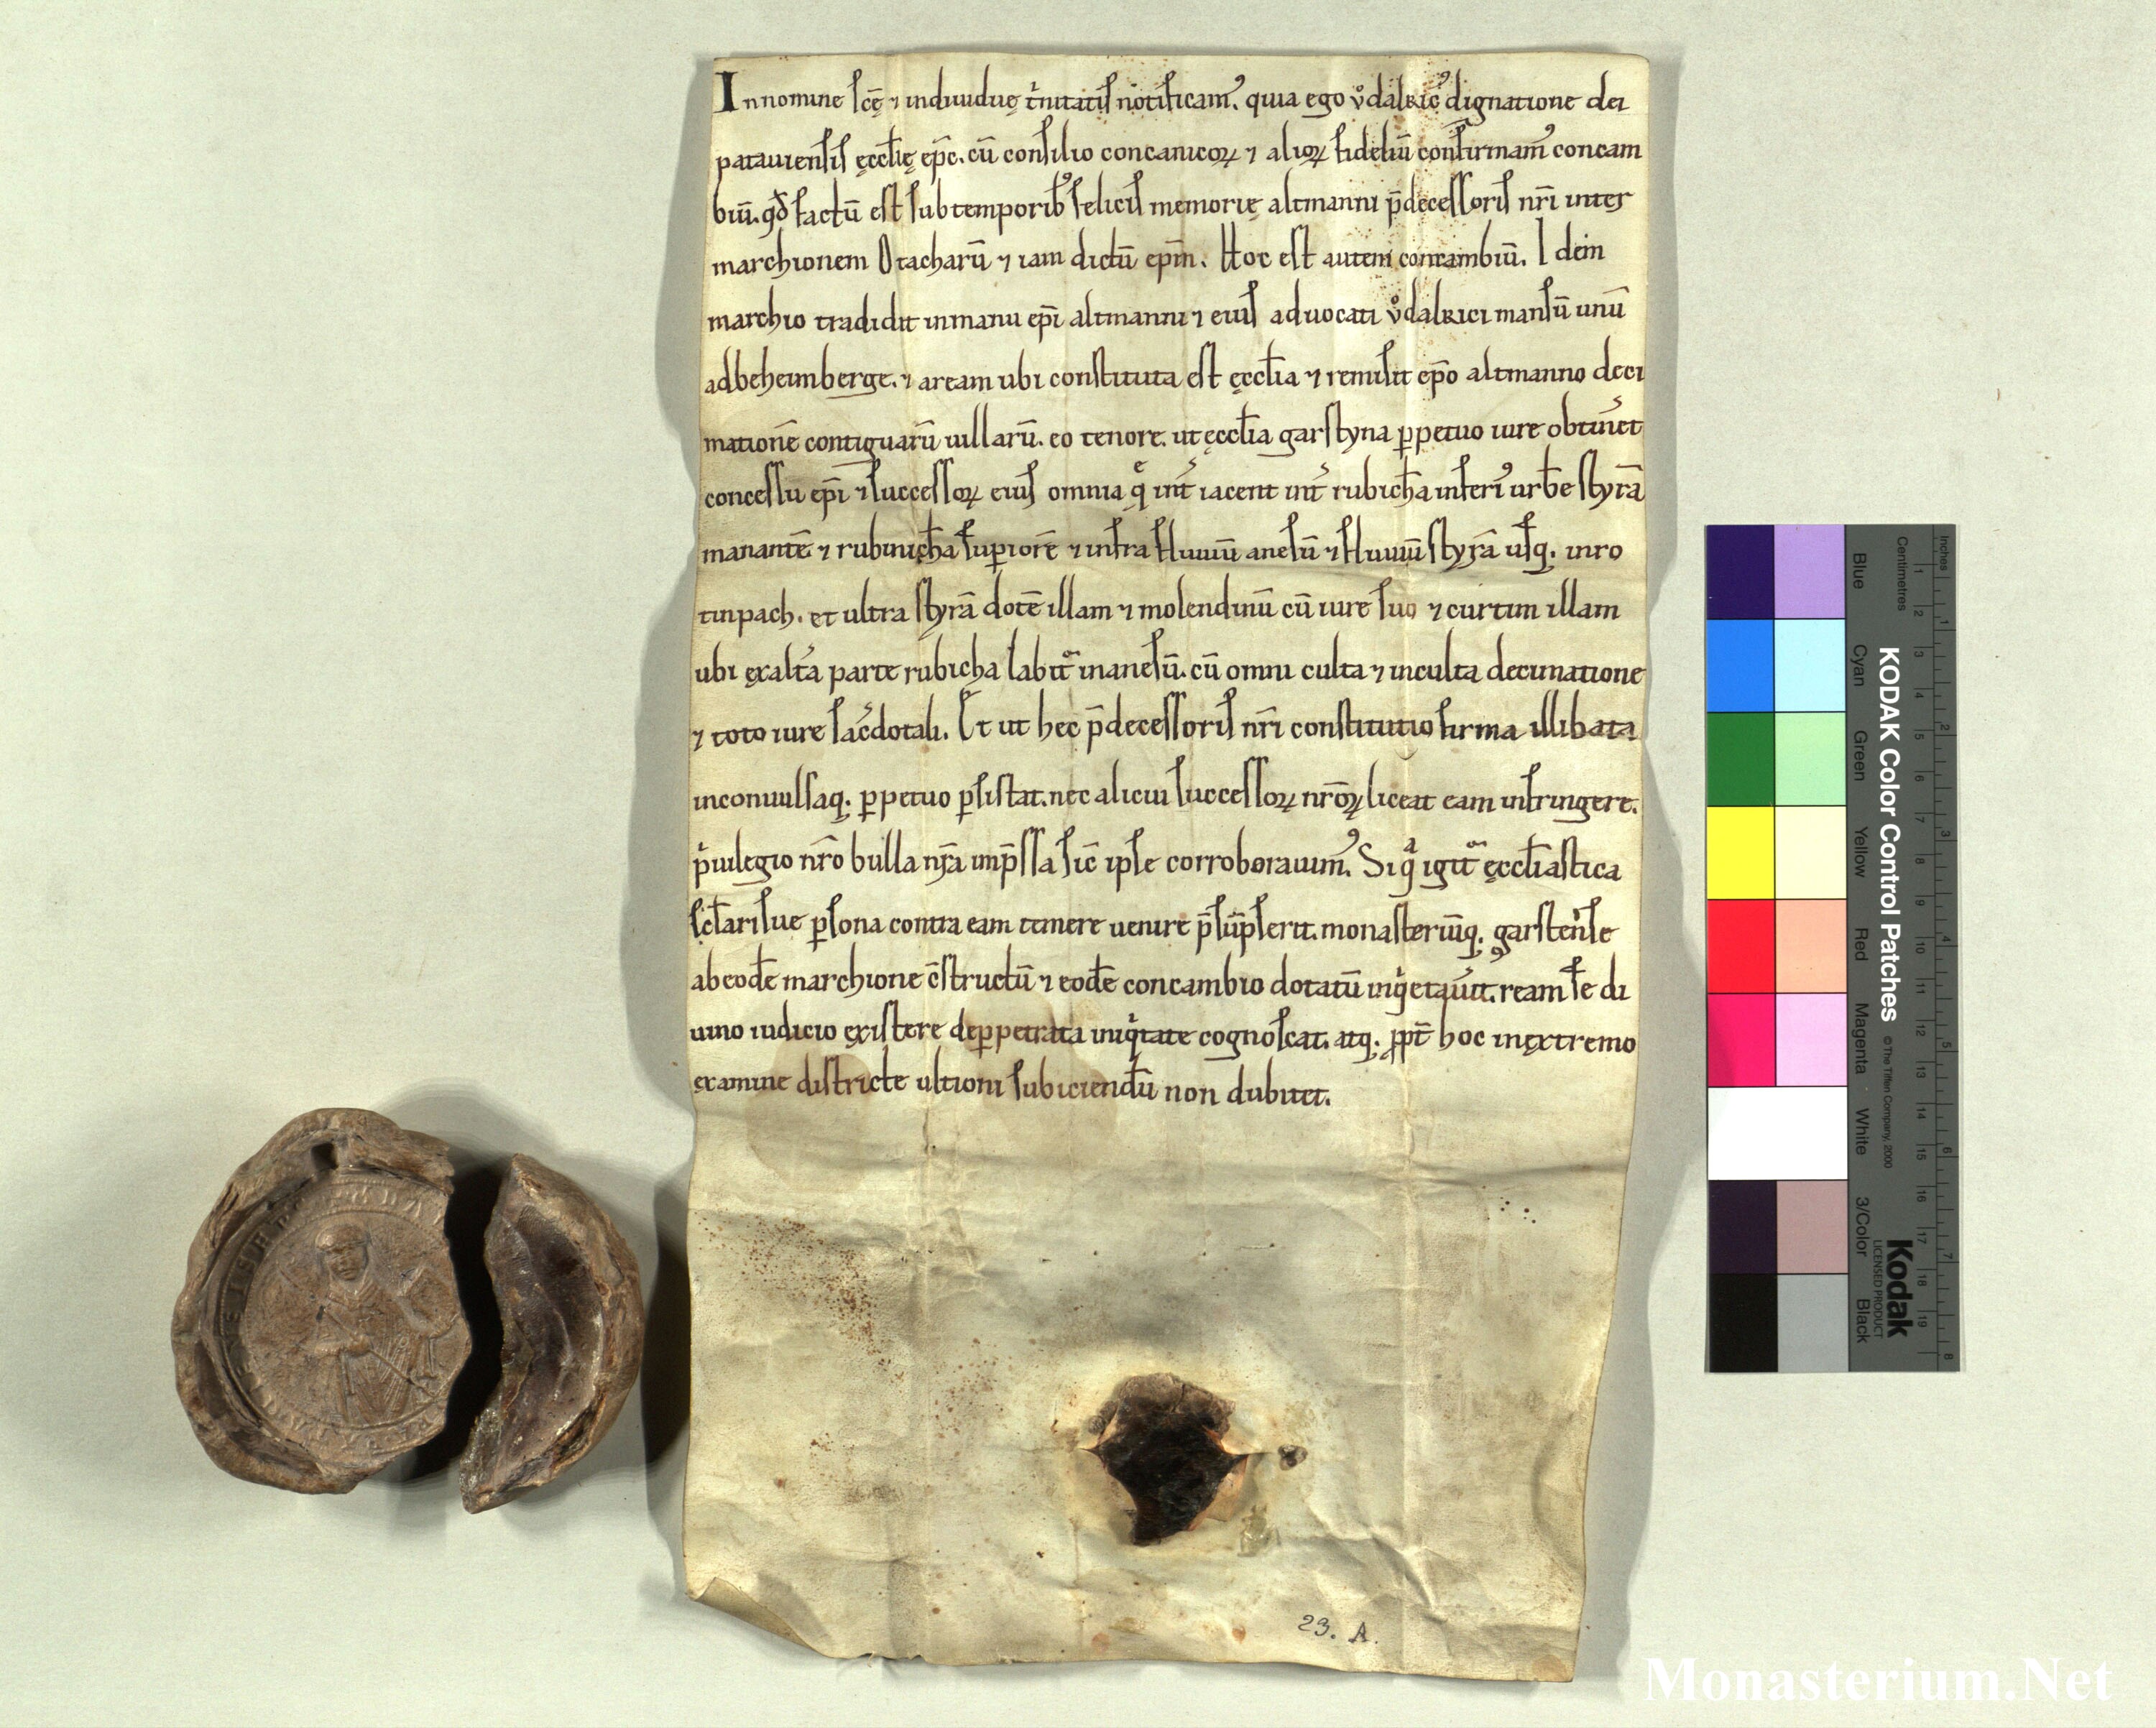 In nomine scę ⁊ indiuiduę trinitatis notificam᾽. quia ego vͦdalricꝰ dignatione dei
patauiensis ęccl̄ię ep̄c. cū consilio concanicoꝝ ⁊ alioꝝ fideliū confirmam᾽ concam
biū. qd̄ factū est sub temporibꝰ felicis memorię altmanni p̄decessoris nr̄i inter
marchionem Otacharū ⁊ iam dictū ep̄m. Hoc est autem concambiū. Idem
marchio tradidit in manu ep̄i altmanni ⁊ eius aduocati vͦdalrici mansū unū
ad beheimberge. ⁊ aream ubi constituta est ęccl̄ia ⁊ remisit ep̄o altmanno deci
mationē contiguarū uillarū. eo tenore. ut ęccl̄ia garstyna ꝑpetuo iure obtin᾽et
concessu ep̄i ⁊ successoꝝ eius omnia q̨ int᾽ iacent int᾽ rubicħa inferi᾽ urbē styrā
manantē ⁊ rubinicħa supiorē ⁊ infra fluuiū anesū ⁊ fluuiū styrā usq. in ro
tinpach. et ultra styrā dotē illam ⁊ molendinū cū iure suo ⁊ curtim illam
ubi ex alt᾽a parte rubicha labit᾽ in anesū. cū omni culta ⁊ inculta decimatione
⁊ toto iure sac᾽dotali. Et ut hęc p̄decessoris nr̄i constitutio firma illibata
inconuulsaq. ꝑpetuo ꝑsistat. nec alicui successoꝝ nr̄oꝝ liceat eam infringere.
pͥuilegio nr̄o bulla nr̄a imp̄ssa sic̄ ipse corroborauim᾽. Si qͣ igit᾽ ęccl̄iastica
sc̄larisue ꝑsona contra eam temere uenire p̄sūpserit. monasteriūq. garstense
ab eodē marchione c̄structū ⁊ eodē concambio dotatū inqͥetau᾽it. ream se di
uino iudicio existere de ꝑpetrata iniqͥtate cognoscat. atq. ꝓpt̄ hoc in extremo
examine districte ultioni subiciendū non dubitet.
23. A.
KODAK Color Control Patches
© The Tiffen Company, 2000
Kodak
LICENSED PRODUCT
Inches
Centimetres
Blue
Cyan
Green
Yellow
Red
Magenta
White
3/Color
Black
1 2 3 4 5 6 7 8 9 10 11 12 13 14 15 16 17 18 19
1 2 3 4 5 6 7 8
Monasterium.Net